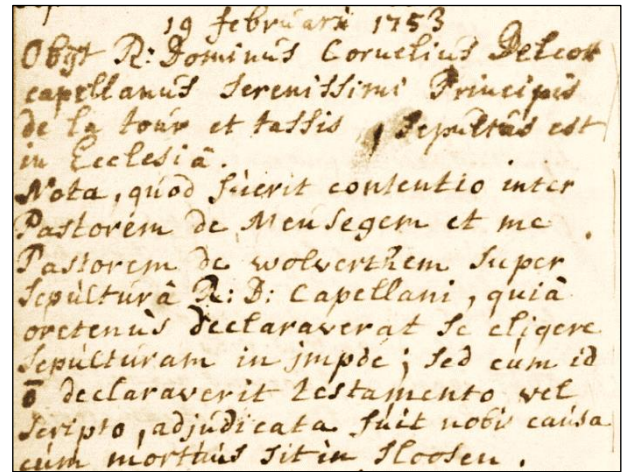 19 februarii 1753
Obijt R: Dominus Cornelius Delcor
capellanus Serenissimi Principis
de la tour et tassis, Sepultus est
in Ecclesiâ.
Nota, quod fuerit contentio inter
Pastorem de Meusegem et me
Pastorem de wolverthem Super
Sepulturâ R: D: Capellani, quia
oretenus declaraverat Se eligere
Sepulturam in impde; Sed cum id
ō declaraverit testamento vel
Scripto, adjudicata fuit nobis causa
cum mortuus Sit in Sloosen.